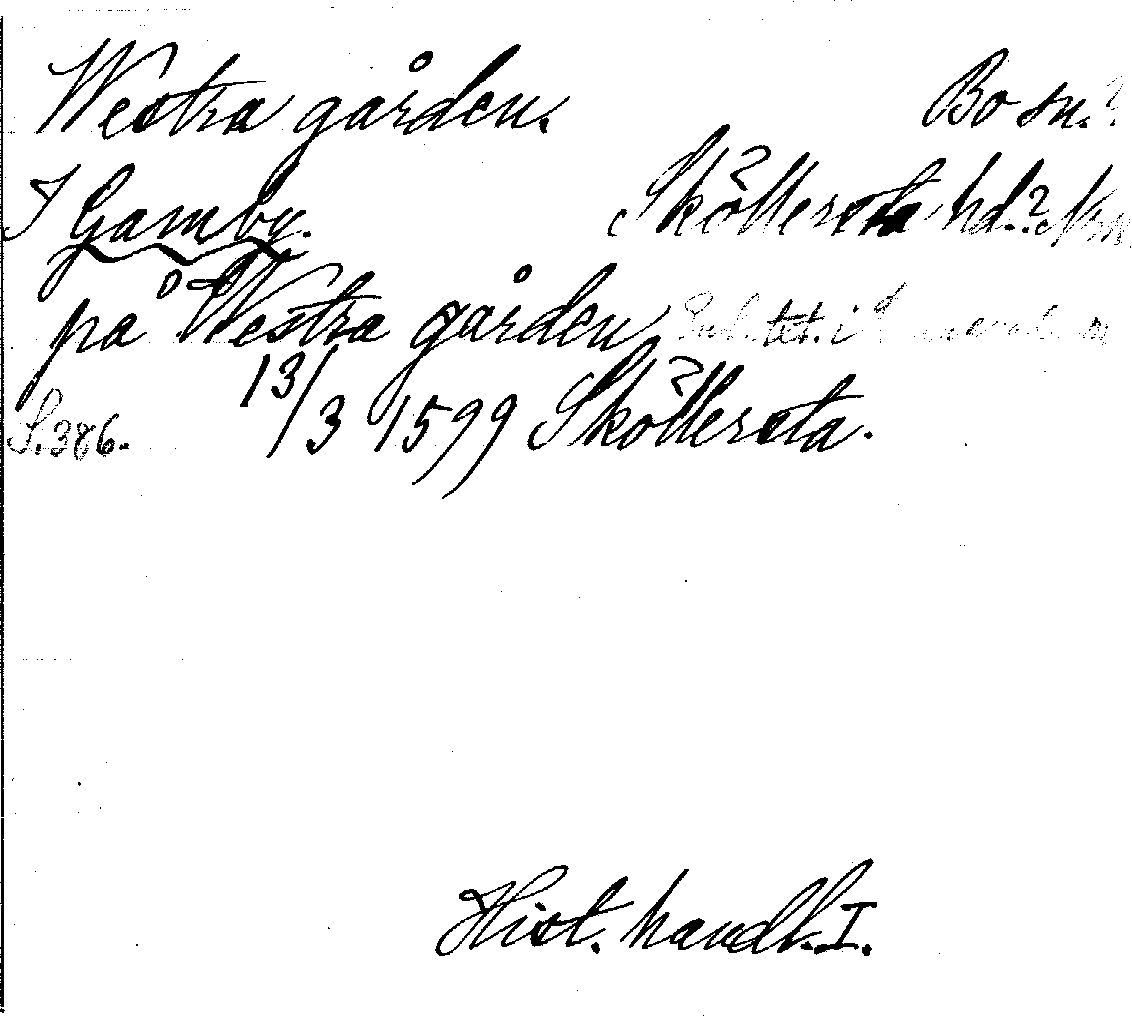 Westra gården. Bo sn.?
I Gamby. Sköllersta hd.? Nrk.
på Westra gården
S. 386. 13/3 1599 Sköllersta.
Hist. handl. I.